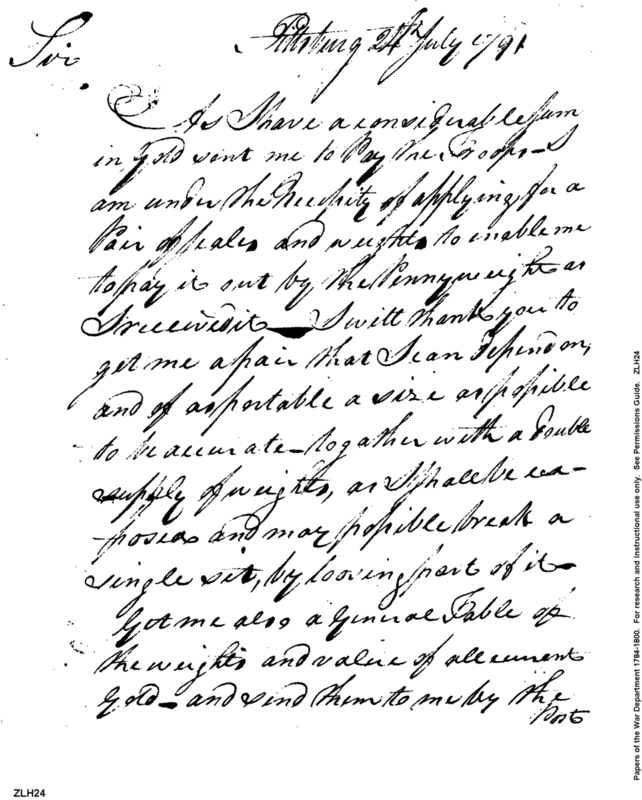 Pittsburg 24th July 1791
Sir
As I have a considerable Sum
in gold sent me to Pay the Troops – I
am under the Necessity of applying for a
Pair of scales and weights to enable me
to pay it out by the Pennyweight as
I received it — I will thank you to
get me a pair that I can depend on,
and of as portable a size as possible
to be accurate – togather with a double
supply of weights, as I shall be ex-
-posed and may possible break a
single set, by loosing part of it –
Get me also a General Table of
the weights and value of all current
Gold – and send them to me by the
Post
Papers of the War Department 1784-1800. For research and instructional use only. See Permissions Guide. ZLH24
ZLH24